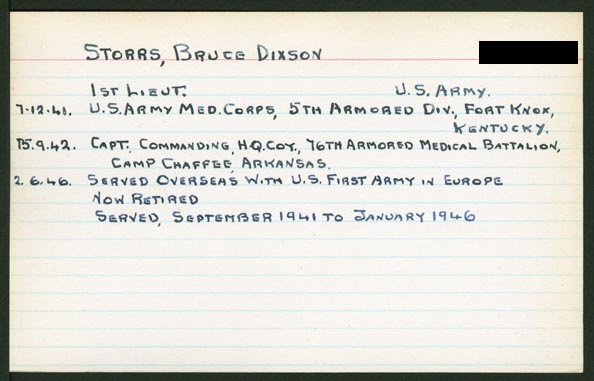 STORRS, BRUCE DIXSON
1ST LIEUT. U.S. ARMY.
7.12.41. U.S. ARMY MED. CORPS, 5TH ARMORED DIV., FORT KNOX,
KENTUCKY.
15.9.42. CAPT. COMMANDING, H.Q. COY., 76TH ARMORED MEDICAL BATTALION,
CAMP CHAFFEE, ARKANSAS.
2.6.46. SERVED OVERSEAS WITH U.S. FIRST ARMY IN EUROPE
NOW RETIRED
SERVED, SEPTEMBER 1941 TO JANUARY 1946